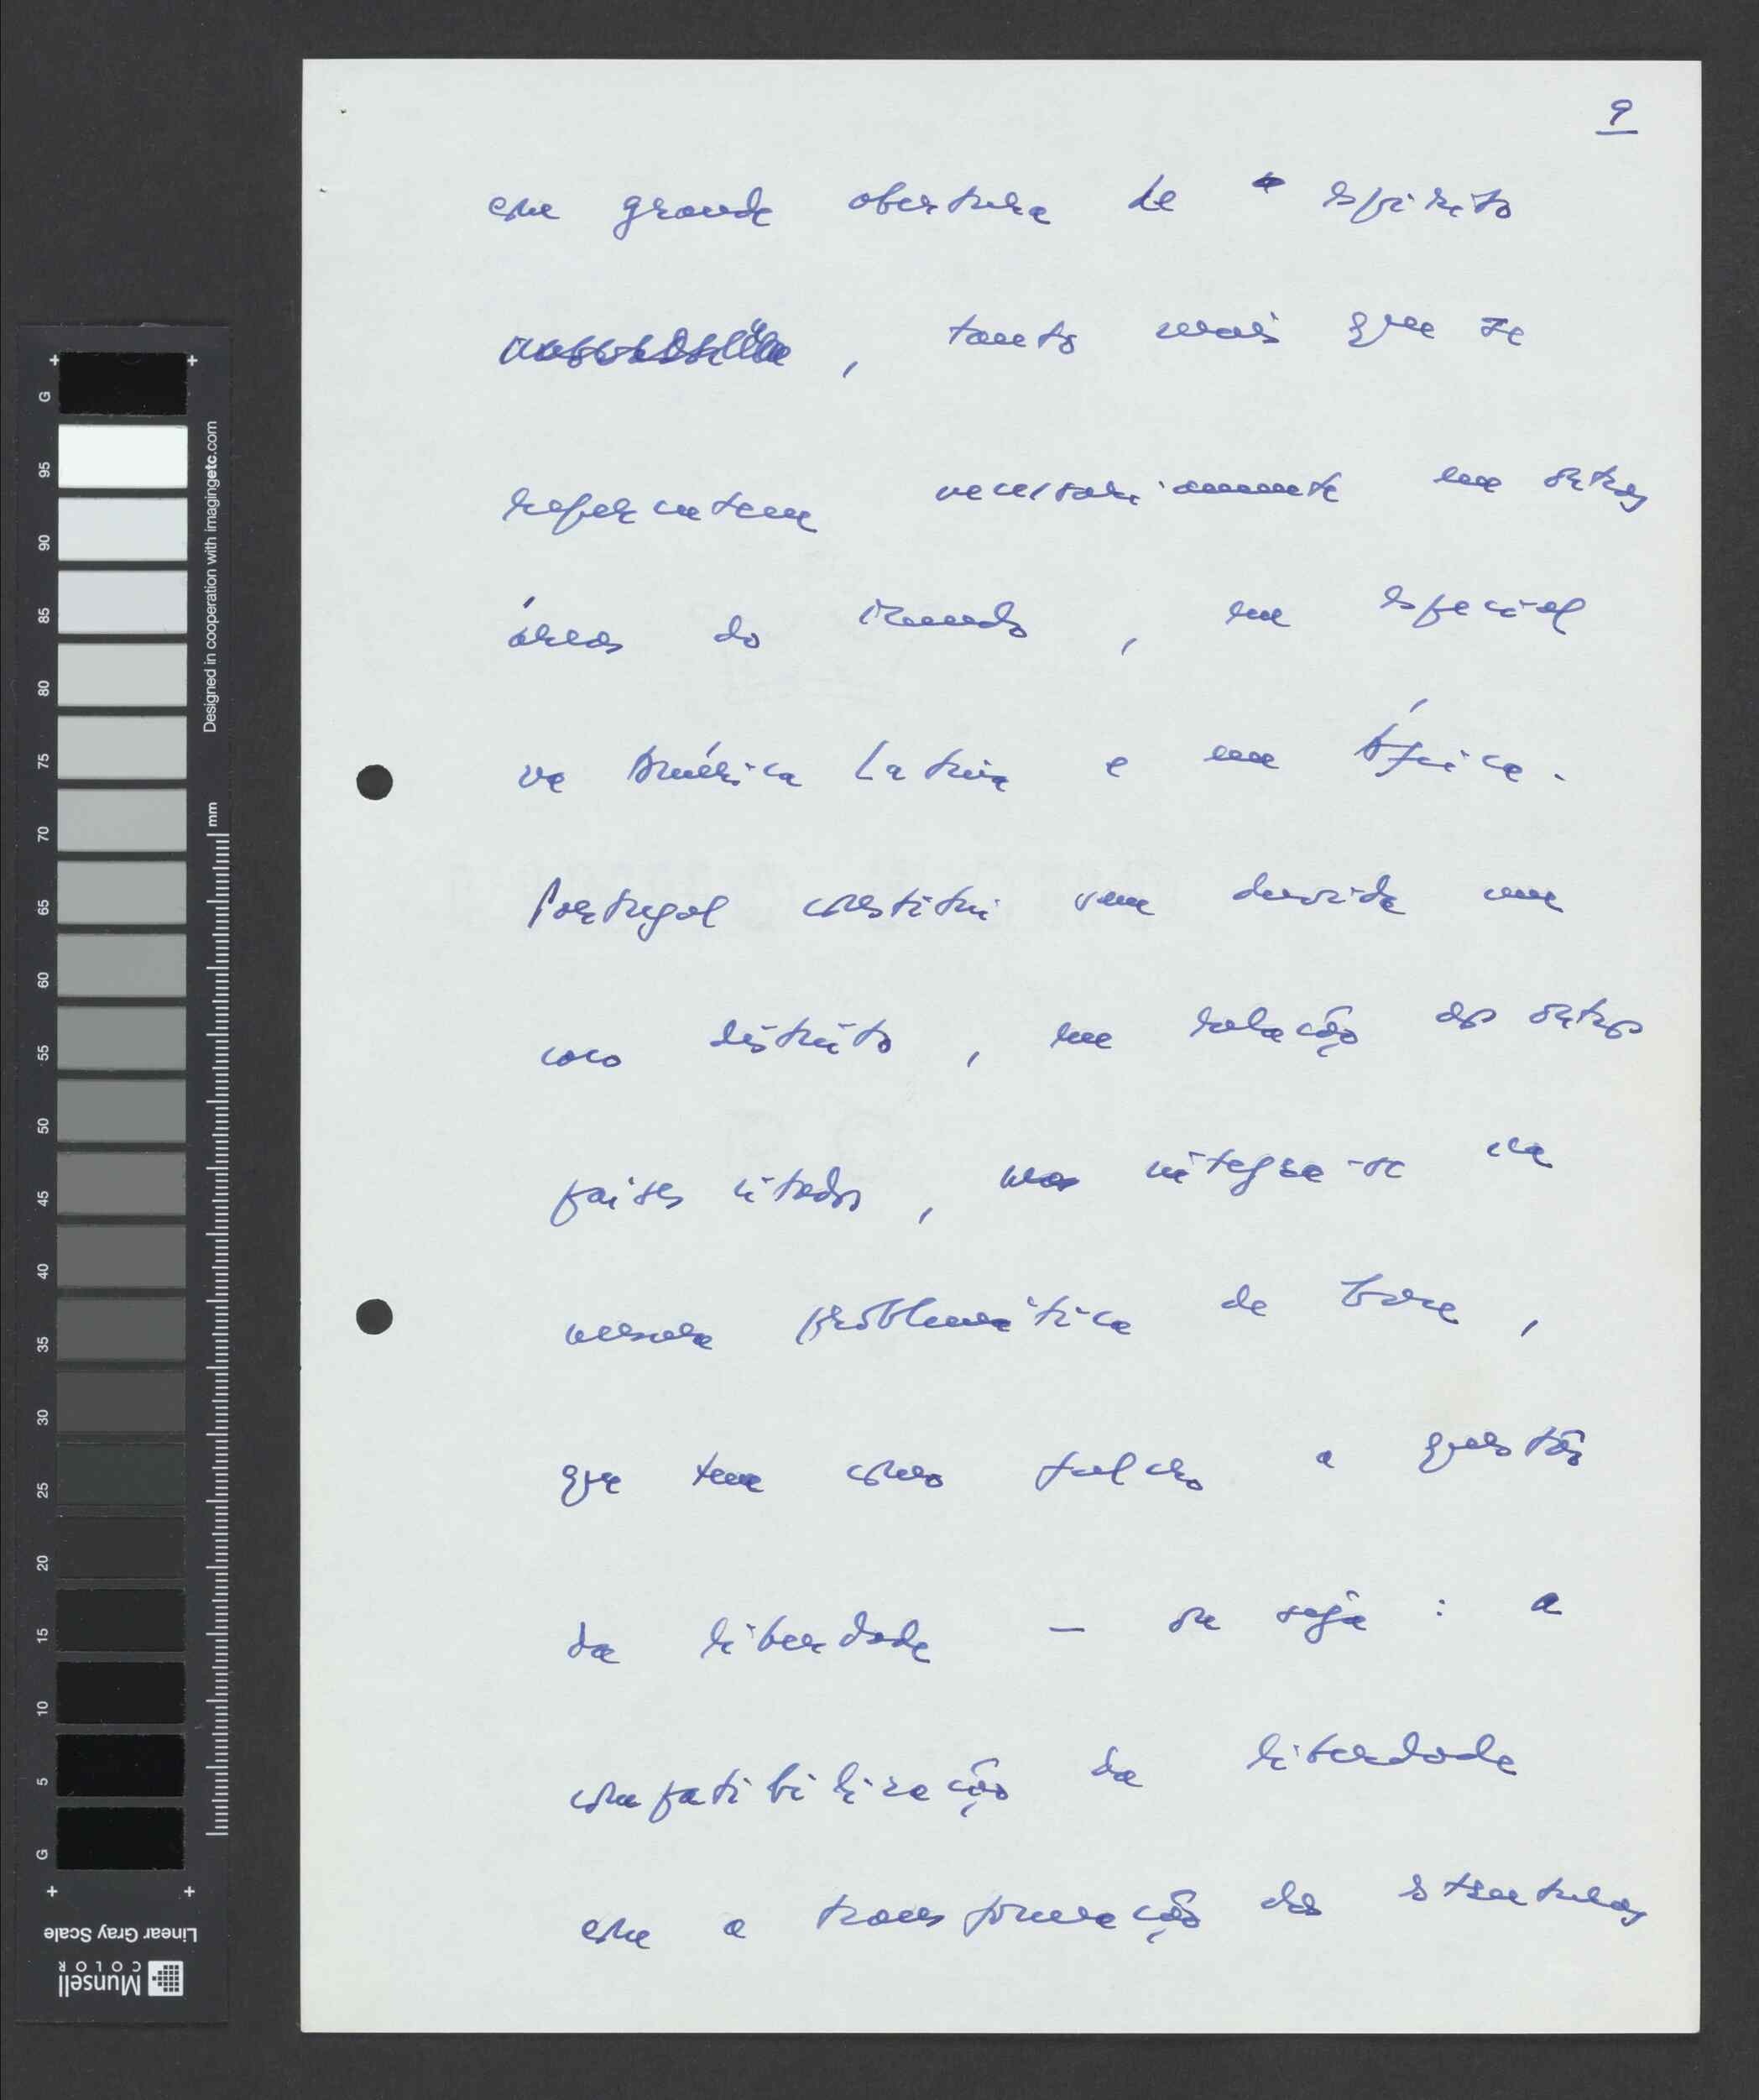 9
com grande abertura de espírito
, tanto mais que se
repercutem necessariamente em outras
áreas do mundo, em especial
na América Latina e em África.
Portugal constitui sem duvida um
caso distinto, em relação aos outros
países citados, mas integra-se na
mesma problemática de base,
que tem como fulcro a questão
da liberdade – ou seja: a
compatibilização da liberdade
com a transformação das estruturas
G
95
90
85
80
75
70
65
60
55
50
45
40
35
30
25
20
15
10
5
G
Designed in cooperation with imagingetc.com
mm
Linear Gray Scale
Munsell
COLOR